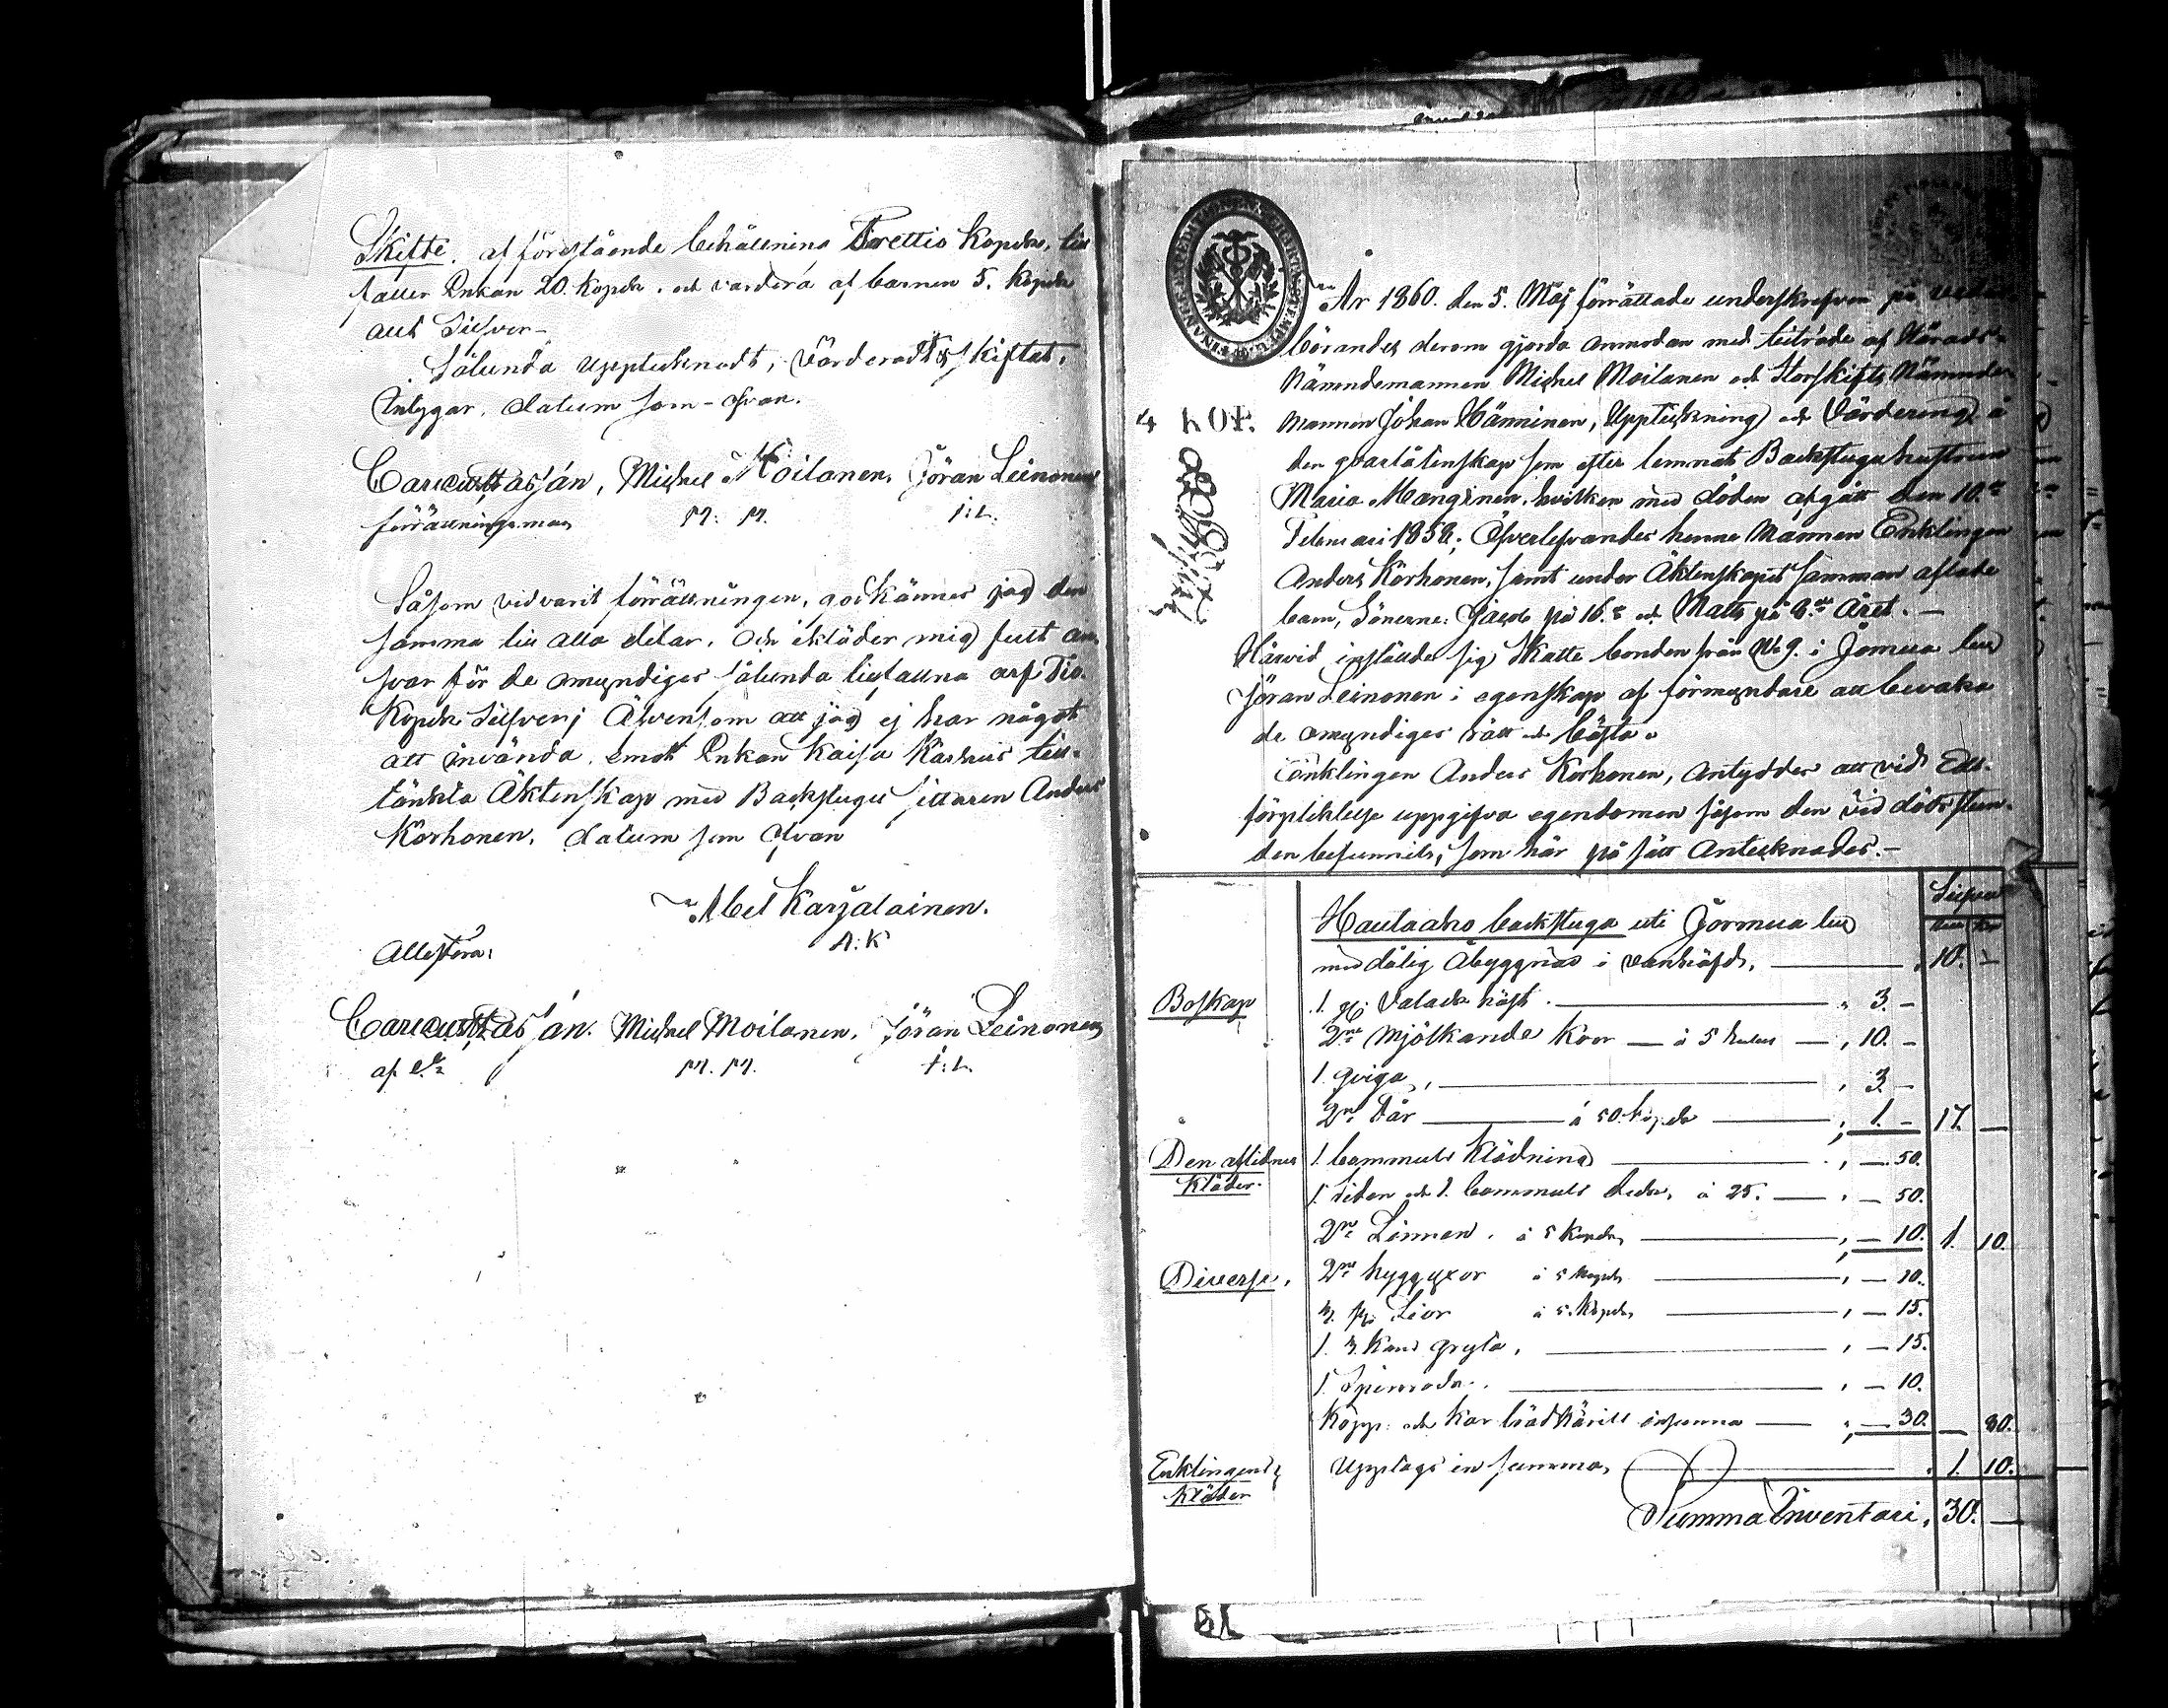 Skifte. af förestående behållning Trettio Kopek, till
faller Enkan 20. Kopek. och vardera af barnen 5. Kopek
allt Silfver-
Sålunda upptecknadt, Värderadt & skiftat,
Intygar, datum som ofvan.
Michel Moilanen. Göran Leinonen
förrättningsman M: M. G:L:
Såsom vidvarit förrättningen, godkänner jag den
samma till alla delar, och ikläder mig fullt an-
svar för de omyndiges sålunda tillfallna arf Tio.
Kopek Silfver; Äfvensom att jag ej har något
att invända, emot Enkan Kaisa Karhus till-
tänkta Äktenskap med Backstugu sittaren Anders
Korhonen. datum som Ofvan
Abel Karjalainen.
A: K
Attestera:
Michel Moilanen, Göran Leinonen
M. M. G: L.
År 1860. den 5. Maj förrättade underskrifven på veder-
börandes derom gjorda anmodan med biträde af Härads-
Nämndemannen Michel Moilanen och Storskifts Nämnde
mannen Johan Hänninen, Uppteckning och Värdering å
4 KOP.
den qvarlåtenskap som efter lemnats Backstuguhustrun
Maria Manginen, hvilken med döden afgått den 10.de
Februari 1858; Öfverlefvandes henne Mannen Enklingen
Anders Korhonen, samt under Äktenskapet samman aflade
barn, Sönerne: Jacob på 16.de och Matts på 8.de Året. —
Härvid inställde sig Skatte bonden från No 9. i Jormua by
Göran Leinonen i egenskap af förmyndare att bevaka
de omyndiges rätt och bästa.
Enklingen Anders Korhonen, antyddes att vid Eds-
förpliktelse uppgifva egendomen såsom den vid dödsstun-
den befunnits, som här på sätt Antecknades. —
Silfver
Hautaaho backstuga uti Jormua by
med dålig Åbyggnad i vanhäfd, — 10. —
Boskap 1. st: Valack häst. — " 3. —
2ne Mjölkande Kor — à 5 Rubel — " 10. —
1. qviga, — " 3. —
2ne Får — à 50. Kopek — " 1. — 17. —
Den aflidnes
Kläder 1. bommuls Klädning — " — 50.
1. siden och 1. bommuls duk, à 25. — " — 50.
2ne Linnen. à 5 Kopek — " — 10. 1. 10.
Diverse. 2ne huggyxor à 5 Kopek — " — 10.
3. st: Lior à 5. Kopek — " — 15.
1. 3. Kans gryta, — " — 15.
1. Spinnrock. — " — 10.
Kopp och Kar träd Käril — " — 30. — 80.
Enklingens
Kläder Upptogs in summa, — 1. 10.
Summa Inventari, 30. —